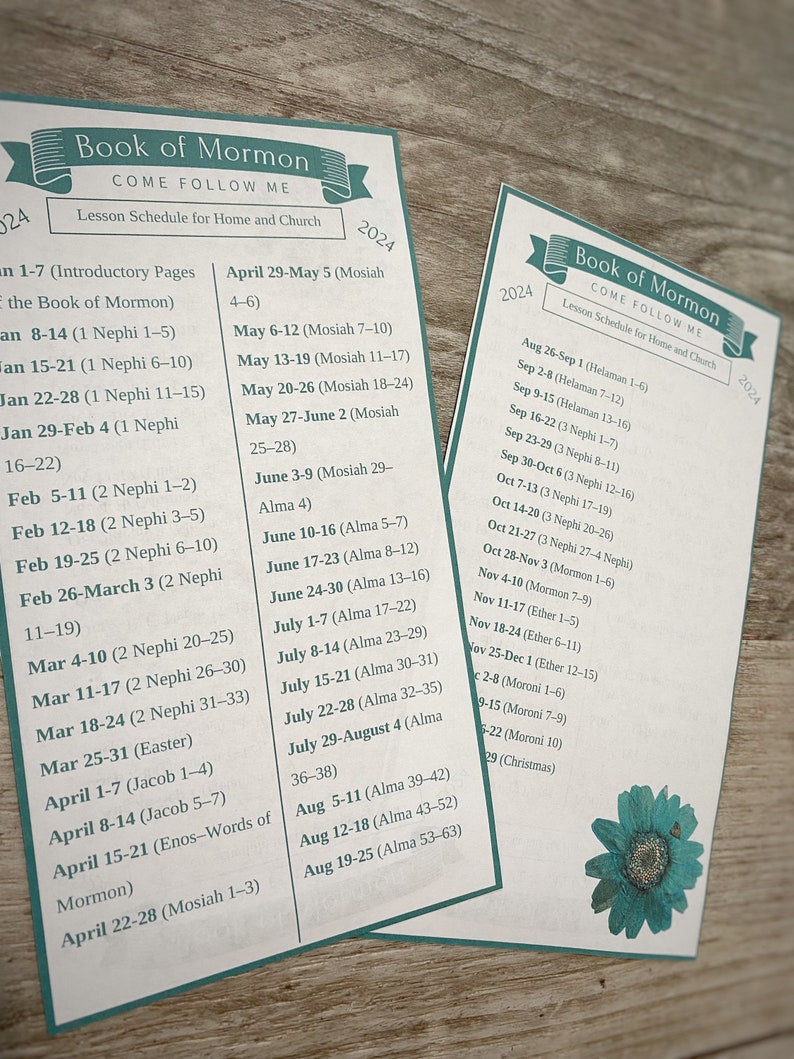 Book of Mormon
COME FOLLOW ME
Lesson Schedule for Home and Church
024
2024
an 1-7 (Introductory Pages
f the Book of Mormon)
an 8-14 (1 Nephi 1–5)
Jan 15-21 (1 Nephi 6–10)
Jan 22-28 (1 Nephi 11–15)
Jan 29-Feb 4 (1 Nephi
16–22)
Feb 5-11 (2 Nephi 1–2)
Feb 12-18 (2 Nephi 3–5)
Feb 19-25 (2 Nephi 6–10)
Feb 26-March 3 (2 Nephi
11–19)
Mar 4-10 (2 Nephi 20–25)
Mar 11-17 (2 Nephi 26–30)
Mar 18-24 (2 Nephi 31–33)
Mar 25-31 (Easter)
April 1-7 (Jacob 1–4)
April 8-14 (Jacob 5–7)
April 15-21 (Enos–Words of
Mormon)
April 22-28 (Mosiah 1–3)
April 29-May 5 (Mosiah
4–6)
May 6-12 (Mosiah 7–10)
May 13-19 (Mosiah 11–17)
May 20-26 (Mosiah 18–24)
May 27-June 2 (Mosiah
25–28)
June 3-9 (Mosiah 29–
Alma 4)
June 10-16 (Alma 5–7)
June 17-23 (Alma 8–12)
June 24-30 (Alma 13–16)
July 1-7 (Alma 17–22)
July 8-14 (Alma 23–29)
July 15-21 (Alma 30–31)
July 22-28 (Alma 32–35)
July 29-August 4 (Alma
36–38)
Aug 5-11 (Alma 39–42)
Aug 12-18 (Alma 43–52)
Aug 19-25 (Alma 53–63)
Book of Mormon
COME FOLLOW ME
2024
Lesson Schedule for Home and Church
2024
Aug 26-Sep 1 (Helaman 1–6)
Sep 2-8 (Helaman 7–12)
Sep 9-15 (Helaman 13–16)
Sep 16-22 (3 Nephi 1–7)
Sep 23-29 (3 Nephi 8–11)
Sep 30-Oct 6 (3 Nephi 12–16)
Oct 7-13 (3 Nephi 17–19)
Oct 14-20 (3 Nephi 20–26)
Oct 21-27 (3 Nephi 27–4 Nephi)
Oct 28-Nov 3 (Mormon 1–6)
Nov 4-10 (Mormon 7–9)
Nov 11-17 (Ether 1–5)
Nov 18-24 (Ether 6–11)
Nov 25-Dec 1 (Ether 12–15)
c 2-8 (Moroni 1–6)
9-15 (Moroni 7–9)
6-22 (Moroni 10)
29 (Christmas)